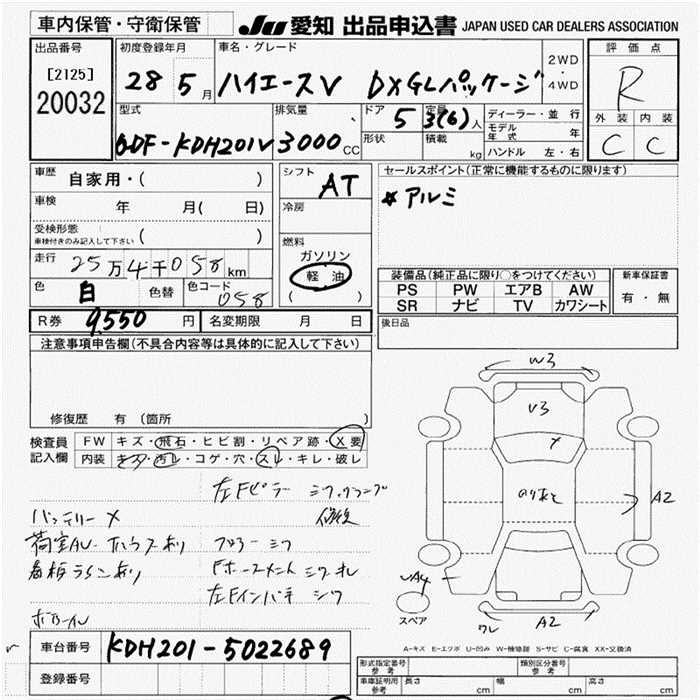 車内保管・守衛保管
JU 愛知 出品申込書 JAPAN USED CAR DEALERS ASSOCIATION
出品番号
[2125]
20032
初度登録年月
28 5 月
車名・グレード
ハイエースV DXGLパッケージ
2WD
・
4WD
評価点
R
外装 内装
C C
型式
QDF-KDH201V
排気量
3000 CC
ドア
5
形状
定員
3(6)人
積載
kg
ディーラー・並行
モデル年式 年
ハンドル 左・右
車歴
自家用・( )
車検
年 月( 日)
受検形態
車検付きのみ記入して下さい ( )
走行
25万4千058 km
色
白
色替
色コード
058
シフト
AT
冷房
燃料
ガソリン
軽油
( )
セールスポイント(正常に機能するものに限ります)
*アルミ
装備品(純正品に限り○をつけてください)
PS PW エアB AW
SR ナビ TV カワシート
新車保証書
有・無
R券 9,550 円
名変期限 月 日
後日品
注意事項申告欄(不具合内容等は具体的に記入して下さい)
修復歴 有(箇所
検査員
記入欄
FW キズ・飛石・ヒビ割・リペア跡・X要
内装 キズ・汚レ・コゲ・穴・スレ・キレ・破レ
左Fピラー
修復
バッテリーX
荷室
フロアーシワ
シワ
W3
V3
A2
A2
ワレ
スペア
A-キズ E-エクボ U-凹み W-補修跡 S-サビ C-腐食 XX-交換済
車台番号
KDH201-5022689
登録番号
形式指定番号
参考
類別区分番号
参考
車庫証明用
参考
長さ cm 幅 cm 高さ cm